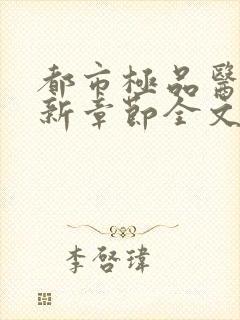 都市極品醫
新章節全文
李啓瑋